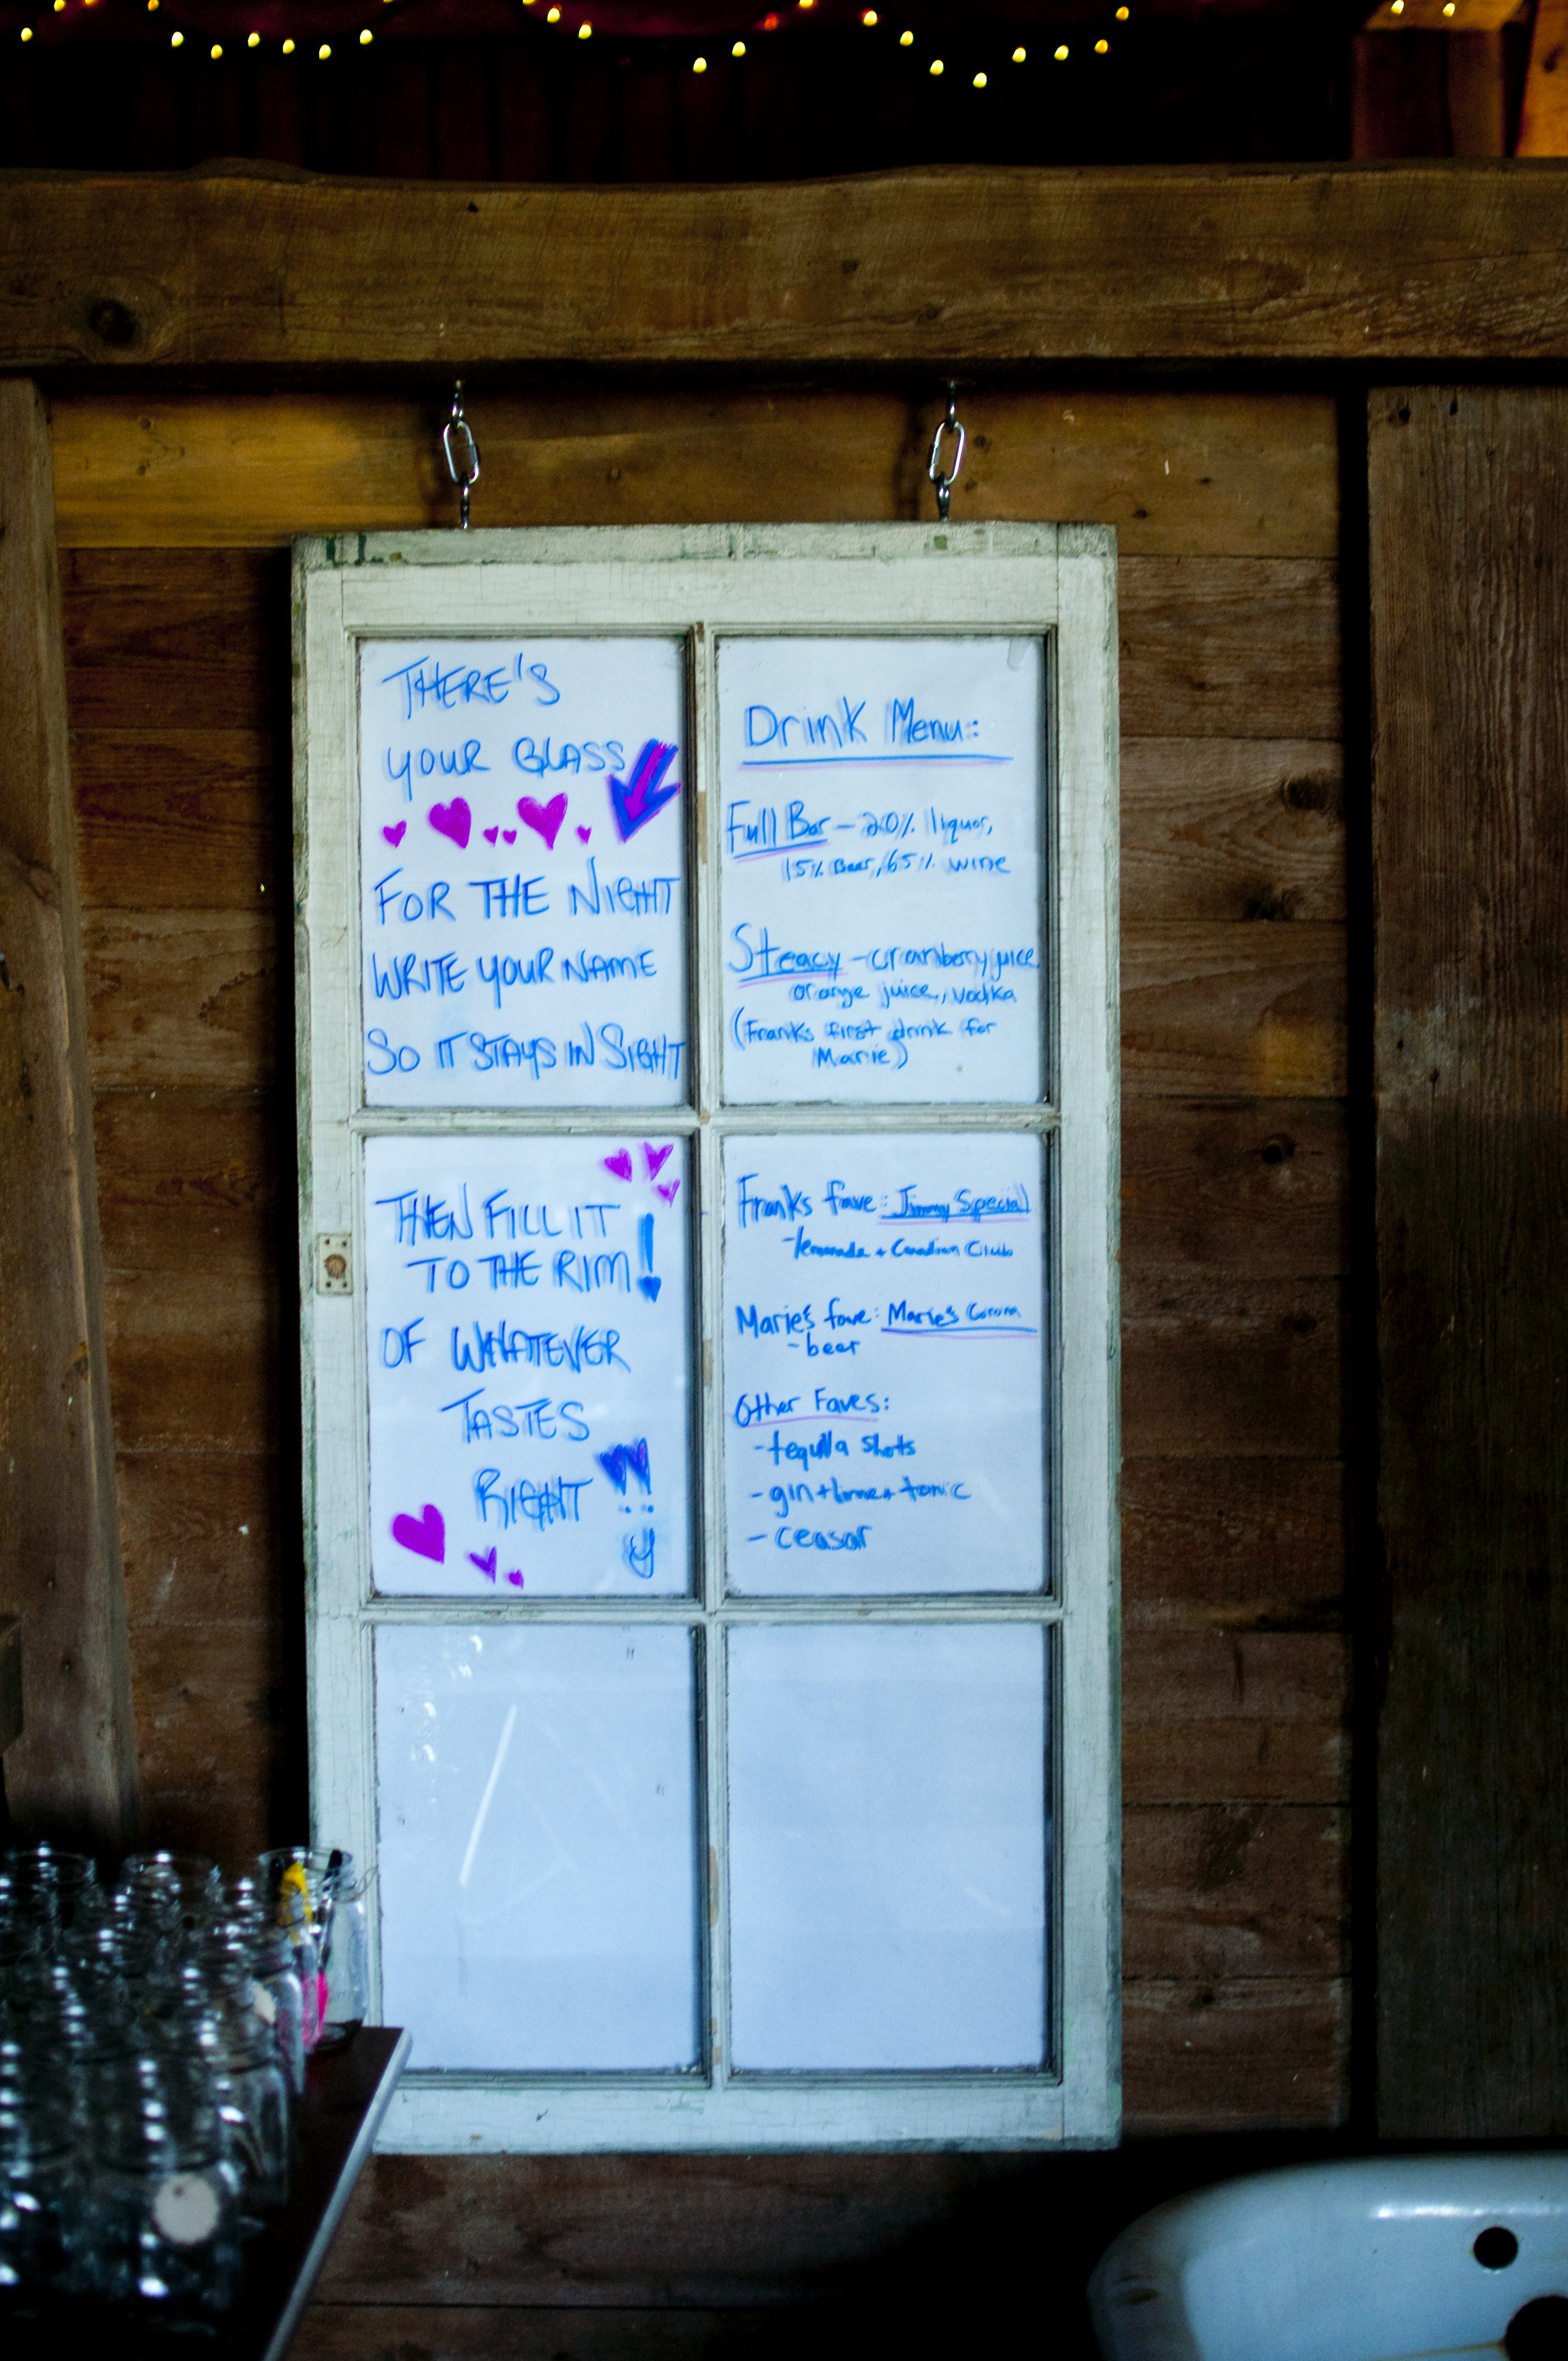 THERE'S
YOUR GLASS
FOR THE NIGHT
WRITE YOUR NAME
SO IT STAYS IN SIGHT
THEN FILL IT
TO THE RIM!
OF WHATEVER
TASTES
RIGHT !!
Drink Menu:
Full Bar - 20% liquor,
15% Beer, 65% wine
Steacy - cranberry juice
orange juice, vodka
(Franks first drink for
Marie)
Franks fave: Jimmy Special
- lemonade + Canadian Club
Marie's fave: Marie's Corona
- beer
Other Faves:
- tequila shots
- gin + lime + tonic
- ceasar